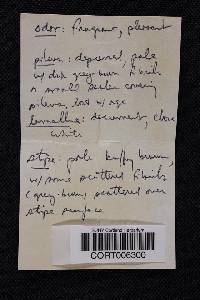 odor: fragrant, pleasant
pileus: depressed, pale
w/ dark grey-brown fibrils
& small scales covering
pileus, lost w/ age
lamellae: decurrent, close
white
stipe: pale buffy brown,
w/ some scattered fibrils
(grey-brown) scattered over
stipe surface
SUNY Cortland Herbarium
CORT006300